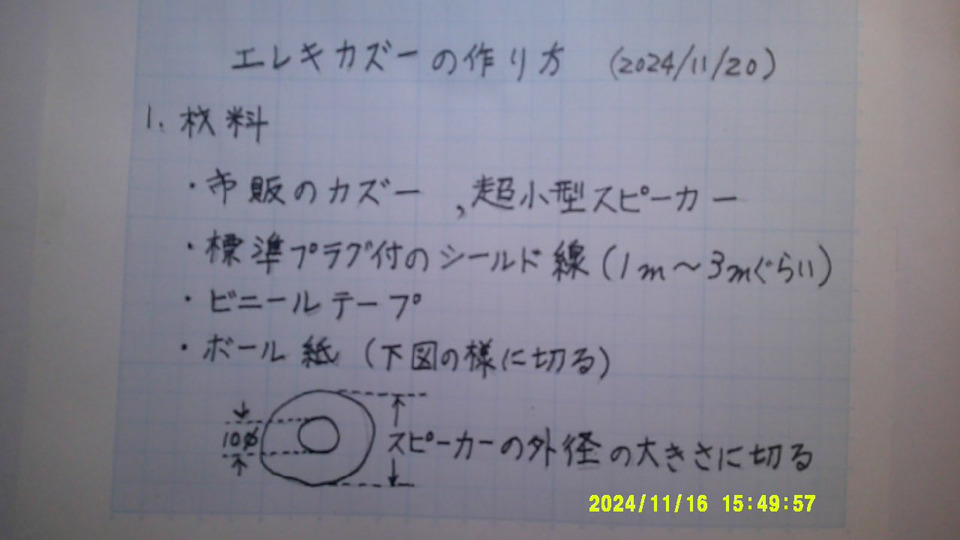 エレキカズーの作り方 (2024/11/20)
1. 材料
・市販のカズー ,超小型スピーカー
・標準プラグ付のシールド線(1m～3mぐらい)
・ビニールテープ
・ボール紙 (下図の様に切る)
10φ
スピーカーの外径の大きさに切る
2024/11/16 15:49:57